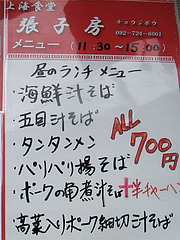 上海食堂
張子房
チョウシボウ
092-724-6001
メニュー (11:30~15:00)
昼のランチメニュー
・海鮮汁そば
・五目汁そば
・タンタンメン
・パリパリ揚そば
・ポークの角煮汁そば+半チャーハン
・高菜入りポーク細切汁そば
ALL
700円